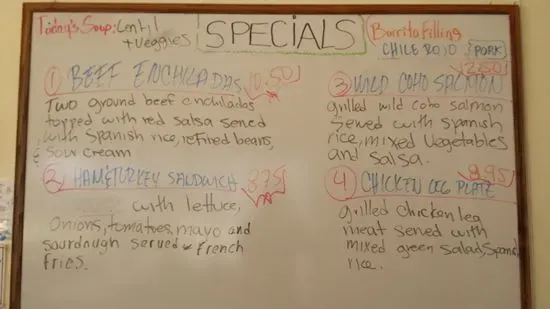 Today's Soup: Lentil
+ Veggies
SPECIALS
Burrito Filling
CHILE ROJO PORK
① BEEF ENCHILADAS 10.50
Two ground beef enchiladas
topped with red salsa served
with Spanish rice, refried beans,
& Sour Cream
② HAM&TURKEY SANDWICH 8.75
with lettuce,
Onions, tomatoes, mayo and
sourdough served w french
fries.
12.50
③ WILD COHO SALMON
grilled wild coho salmon
Served with Spanish
rice, mixed vegetables
and salsa.
8.95
④ CHICKEN LEG PLATE
grilled chicken leg
meat served with
mixed green salad, Spanish
rice.